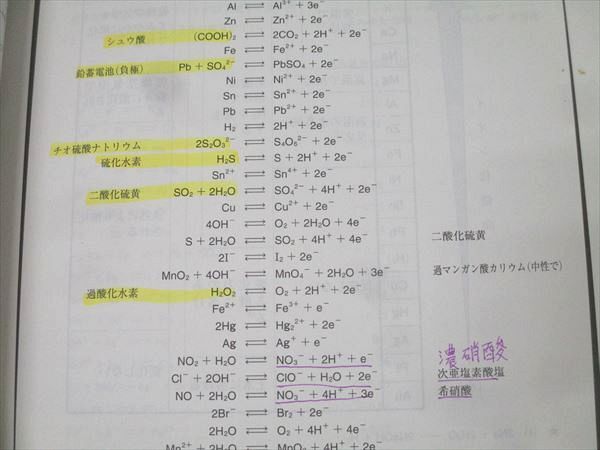 Al ⇄ Al³⁺ + 3e⁻
Zn ⇄ Zn²⁺ + 2e⁻
シュウ酸 (COOH)₂ ⇄ 2CO₂ + 2H⁺ + 2e⁻
Fe ⇄ Fe²⁺ + 2e⁻
鉛蓄電池(負極) Pb + SO₄²⁻ ⇄ PbSO₄ + 2e⁻
Ni ⇄ Ni²⁺ + 2e⁻
Sn ⇄ Sn²⁺ + 2e⁻
Pb ⇄ Pb²⁺ + 2e⁻
H₂ ⇄ 2H⁺ + 2e⁻
チオ硫酸ナトリウム 2S₂O₃²⁻ ⇄ S₄O₆²⁻ + 2e⁻
硫化水素 H₂S ⇄ S + 2H⁺ + 2e⁻
Sn²⁺ ⇄ Sn⁴⁺ + 2e⁻
二酸化硫黄 SO₂ + 2H₂O ⇄ SO₄²⁻ + 4H⁺ + 2e⁻
Cu ⇄ Cu²⁺ + 2e⁻
4OH⁻ ⇄ O₂ + 2H₂O + 4e⁻
S + 2H₂O ⇄ SO₂ + 4H⁺ + 4e⁻ 二酸化硫黄
2I⁻ ⇄ I₂ + 2e⁻
MnO₂ + 4OH⁻ ⇄ MnO₄⁻ + 2H₂O + 3e⁻ 過マンガン酸カリウム(中性で)
過酸化水素 H₂O₂ ⇄ O₂ + 2H⁺ + 2e⁻
Fe²⁺ ⇄ Fe³⁺ + e⁻
2Hg ⇄ Hg₂²⁺ + 2e⁻
Ag ⇄ Ag⁺ + e⁻
NO₂ + H₂O ⇄ NO₃⁻ + 2H⁺ + e⁻ 濃硝酸
Cl⁻ + 2OH⁻ ⇄ ClO⁻ + H₂O + 2e⁻ 次亜塩素酸塩
NO + 2H₂O ⇄ NO₃⁻ + 4H⁺ + 3e⁻ 希硝酸
2Br⁻ ⇄ Br₂ + 2e⁻
2H₂O ⇄ O₂ + 4H⁺ + 4e⁻
Mn²⁺ + 2H₂O ⇄ MnO₂ + 4H⁺ + 2e⁻